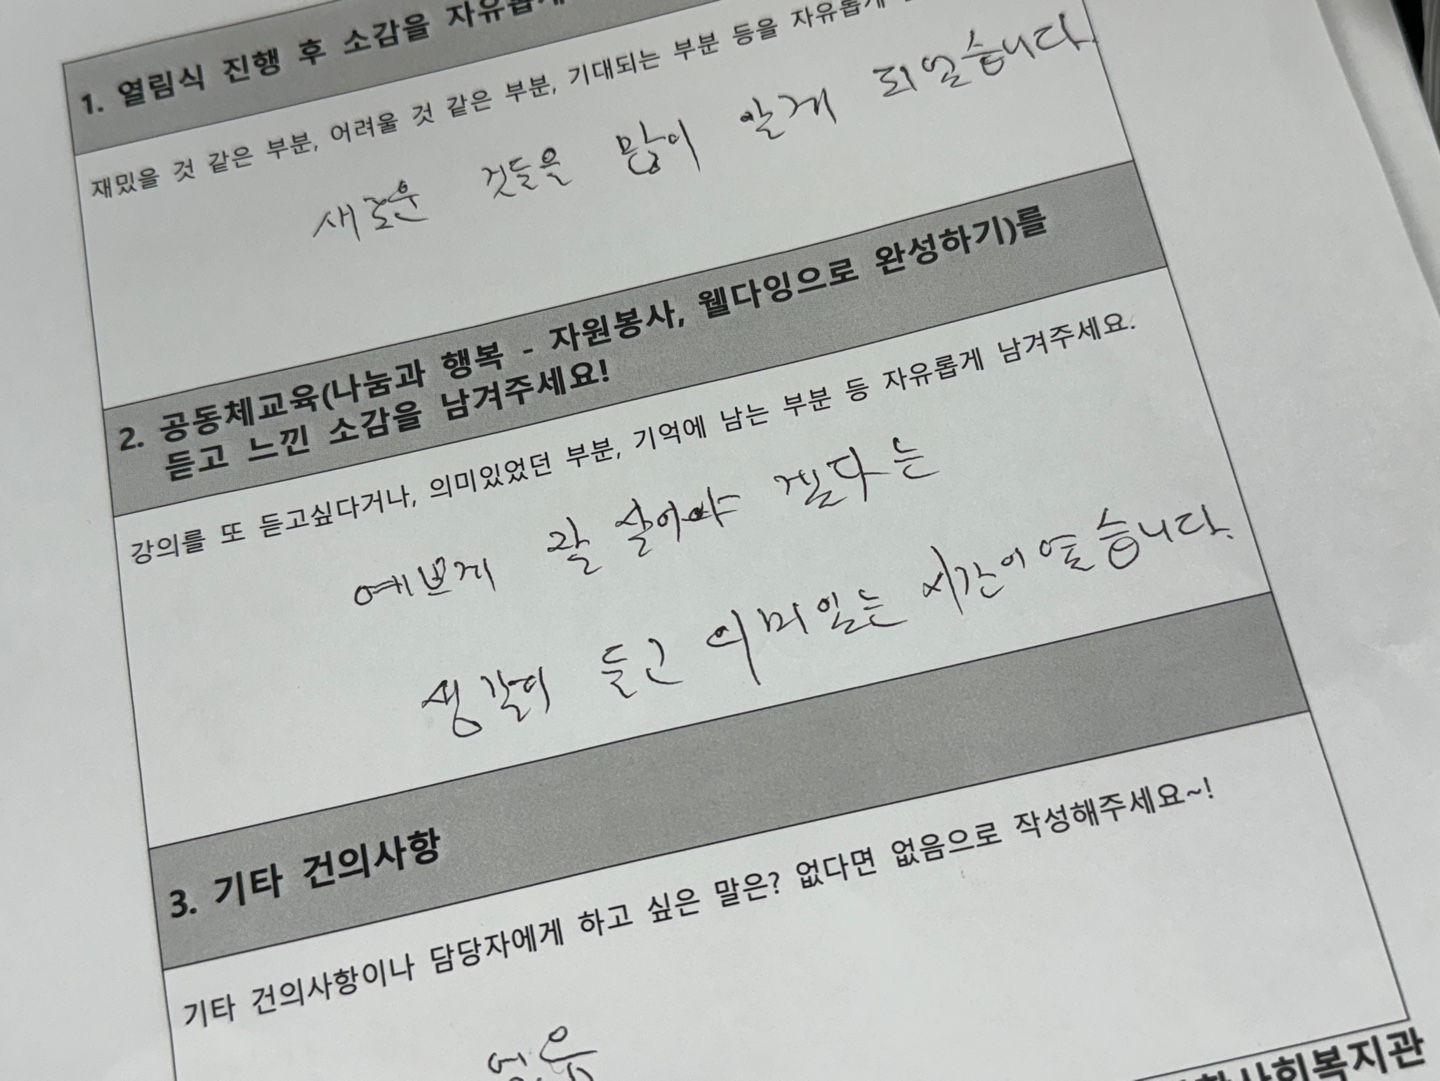 1. 열림식 진행 후 소감을 자유롭게
재밌을 것 같은 부분, 어려울 것 같은 부분, 기대되는 부분 등을 자유롭게
새로운 것들을 많이 알게 되었습니다.
2. 공동체교육(나눔과 행복 - 자원봉사, 웰다잉으로 완성하기)를
듣고 느낀 소감을 남겨주세요!
강의를 또 듣고싶다거나, 의미있었던 부분, 기억에 남는 부분 등 자유롭게 남겨주세요.
예쁘게 잘 살아야 겠다는
생각이 들고 의미있는 시간이었습니다.
3. 기타 건의사항
기타 건의사항이나 담당자에게 하고 싶은 말은? 없다면 없음으로 작성해주세요~!
없음
사회복지관